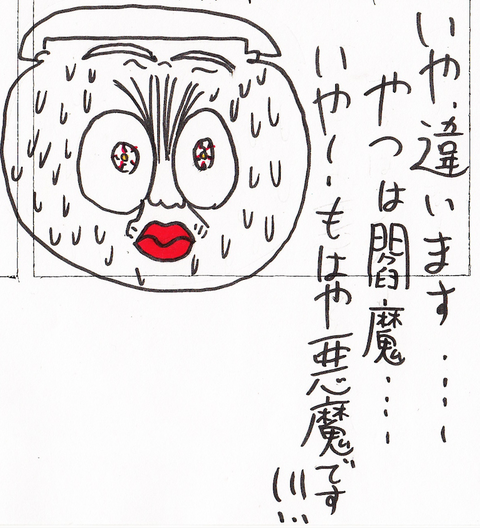 いや・違います・・・・・
やつは閻魔・・・・
いや～・もはや悪魔です!!!